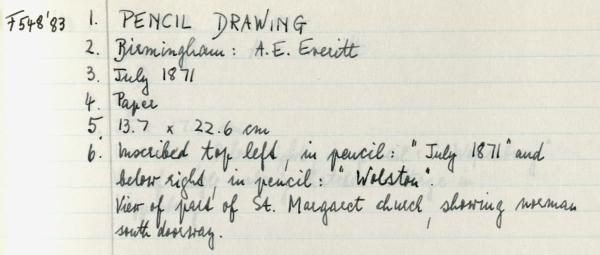 F548'83 1. PENCIL DRAWING
2. Birmingham: A.E. Everitt
3. July 1871
4. Paper
5. 13.7 x 22.6 cm
6. Inscribed top left, in pencil: "July 1871" and
below right, in pencil: "Wolston".
View of part of St. Margaret church, showing norman
south doorway.